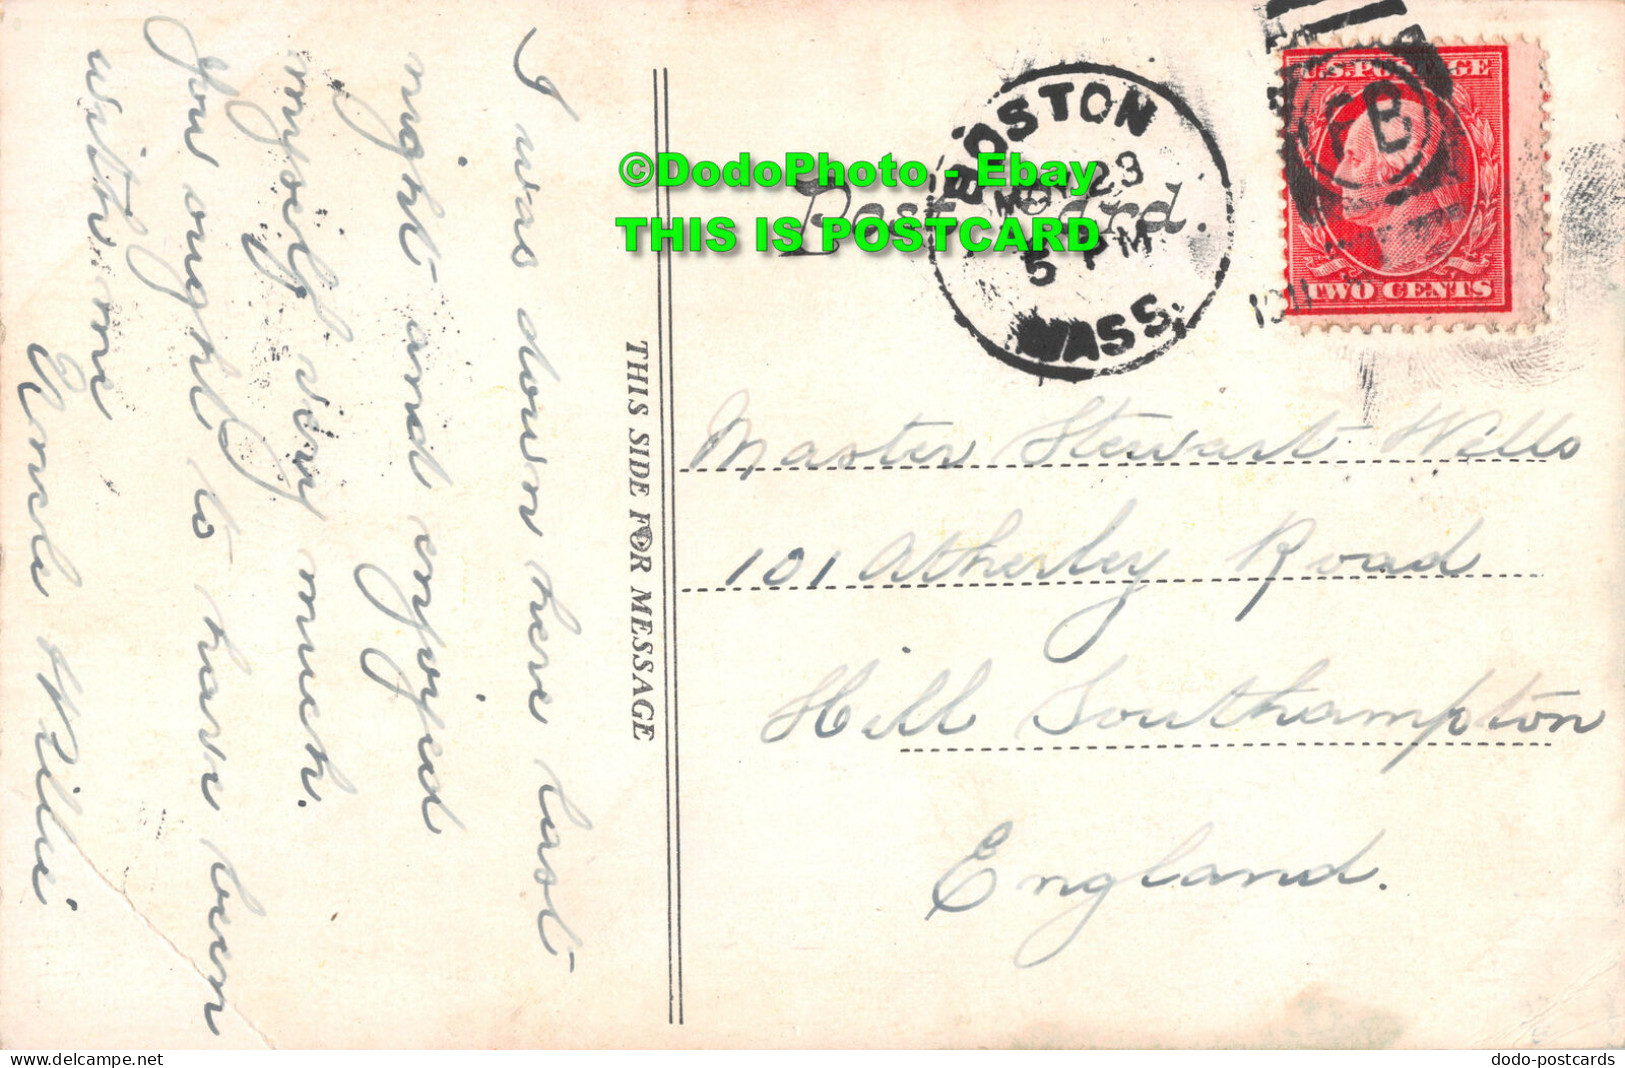 I was down here last
night and enjoyed
myself very much.
You ought to have been
with me
Uncle Willie
THIS SIDE FOR MESSAGE
Post Card.
©DodoPhoto - Ebay
THIS IS POSTCARD
BOSTON
23
5 PM
MASS.
1911
U.S. POSTAGE
TWO CENTS
Master Stewart Wells
101 Atherley Road
Hill Southampton
England.
www.delcampe.net
dodo-postcards